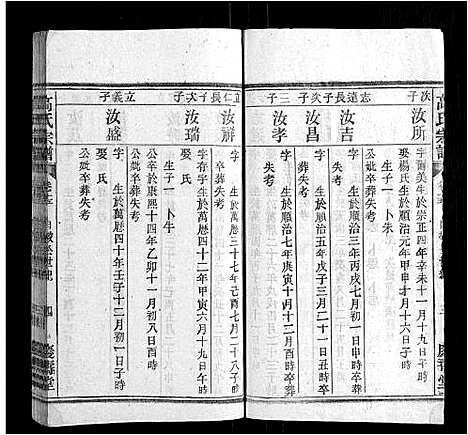 次子
汝所
字爾美生於崇正四年辛未十一月十九日
娶楊氏生於順治元年甲申
生子一 卜朱
志遠長子
汝吉
字 生於順治三年丙戌七月初一日申時卒葬失考
次子
汝昌
字 生於順治五年戊子三月二十一日丑時卒葬失考
三子
汝孝
字 生於順治七年庚寅十月十二月
卒葬失考
立仁長子
字 生於萬曆三十七年己酉二月二十八子時
卒葬失考
次子
汝瑞
字存宇生於萬曆四十二年甲寅六月十九日午時
卒於康熙十四年乙卯十一月初八日酉時
生子一 卜牛
娶 氏
公妣卒葬失考
立義子
汝盛
字 生於萬曆四十年壬子十二月初一日子時
娶 氏
公妣卒葬失考
高氏宗譜
四
慶善堂